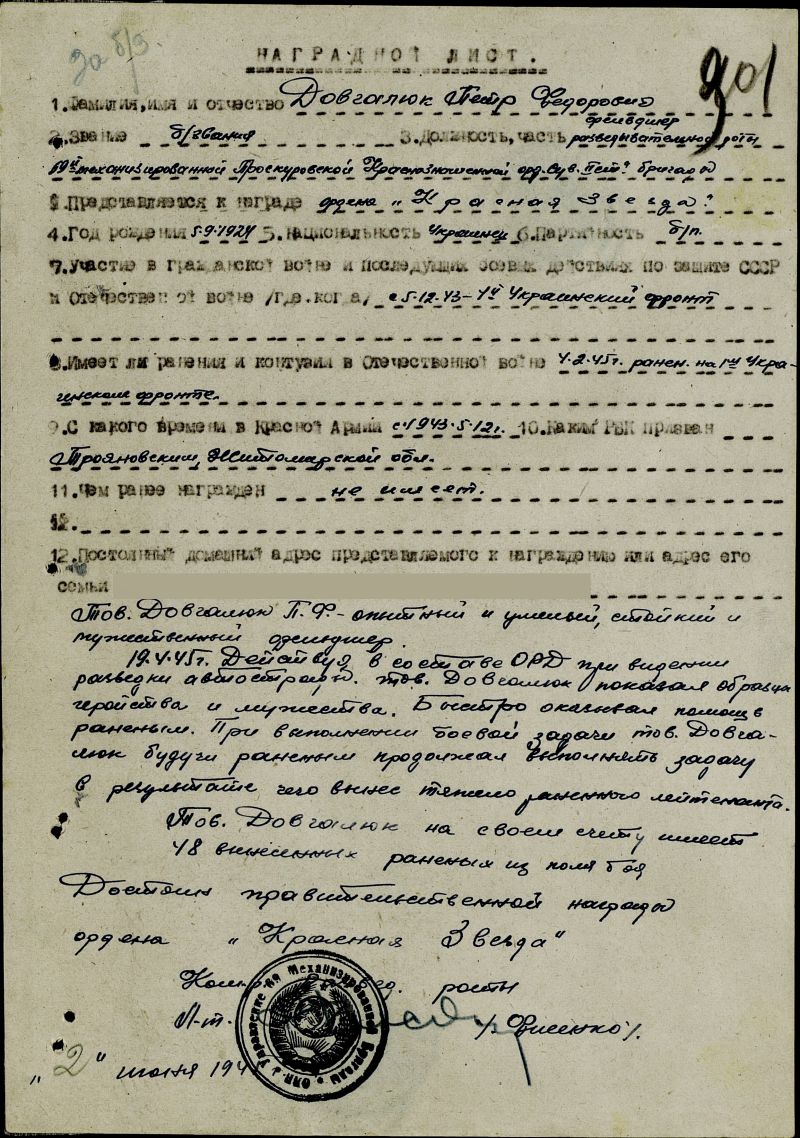 за б/з.
901
НАГРАДНОЙ ЛИСТ.
1.Фамилия,имя и отчество Довгалюк Петр Федорович
2.Звание б/звания 3.Должность,часть фельдшер разведывательной роты
механизированной Проскуровской Краснознаменной орд.Сув. бригады
3.Представляется к награде ордена „Красная Звезда"
4.Год рождения 5.9.1924 5.Национальность Украинец 6.Партийность б/п.
7.Участие в гражданской войне и последующих боевых действиях по защите СССР
и Отечественной войне /где.когда/ с 5.12.43 - 1й Украинский фронт
8.Имеет ли ранения и контузии в Отечественной войне 4.2.45г. ранен. на 1м Укра-
инском фронте.
9.С какого времени в Красной Армии с 1943.5.12г. 10.Каким РВК призван
Трояновским, Житомирской обл.
11.Чем ранее награжден не имеет.
12.
12.Постоянный домашний адрес представляемого к награждению или адрес его
семьи
Тов. Довгалюк П.Ф. - опытный и умелый, стойкий и
мужественный фельдшер.
19.4.45г. Действуя в составе ОРД при ведении
разведки автострады. тов. Довгалюк показал образцы
геройства и мужества. Быстро оказывал помощь
раненым. При выполнении боевой задачи тов. Довга-
люк будучи раненым продолжал выполнять задачу
в результате чего вынес тяжело раненного лейтенанта.
Тов. Довгалюк на своем счету имеет
48 вынесенных раненых из поля боя
Достоин правительственной награды
ордена „Красная Звезда"
роты
Л-т.
„2" июня 194